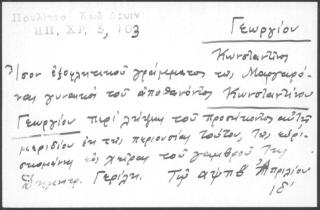 Πουλίτσα Κωδ
ΗΠ. ΧΡ. 5, 103
Γεωργίου
Κωνσταντῖνος
Ἴσον ἐξοφλητικοῦ γράμματος τῆς Μαργαρώ-
νας γυναικός τοῦ ἀποθανόντος Κωνσταντίνου
Γεωργίου περί λήψεως τοῦ προσήκοντος αὐτῇ
μεριδίου ἐκ τῆς περιουσίας τούτου, τῆς εὑρι-
σκομένης εἰς χεῖρας τοῦ γαμβροῦ της
Δημητρ. Γερίλη. Τῷ αψπβ Ἀπριλίου
ιδ'